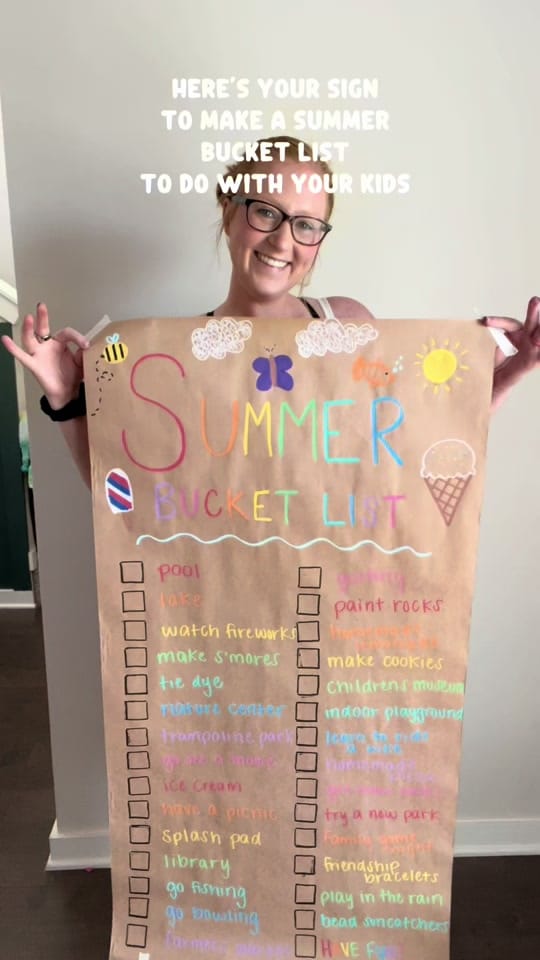 HERE'S YOUR SIGN
TO MAKE A SUMMER
BUCKET LIST
TO DO WITH YOUR KIDS
SUMMER
BUCKET LIST
pool
lake
watch fireworks
make s'mores
tie dye
nature center
trampoline park
go see a movie
ice cream
have a picnic
splash pad
library
go fishing
go bowling
farmers market
paint rocks
make cookies
childrens museum
indoor playground
learn to ride
a bike
homemade
try a new park
family game
night
friendship
bracelets
play in the rain
bead suncatchers
HAVE FUN